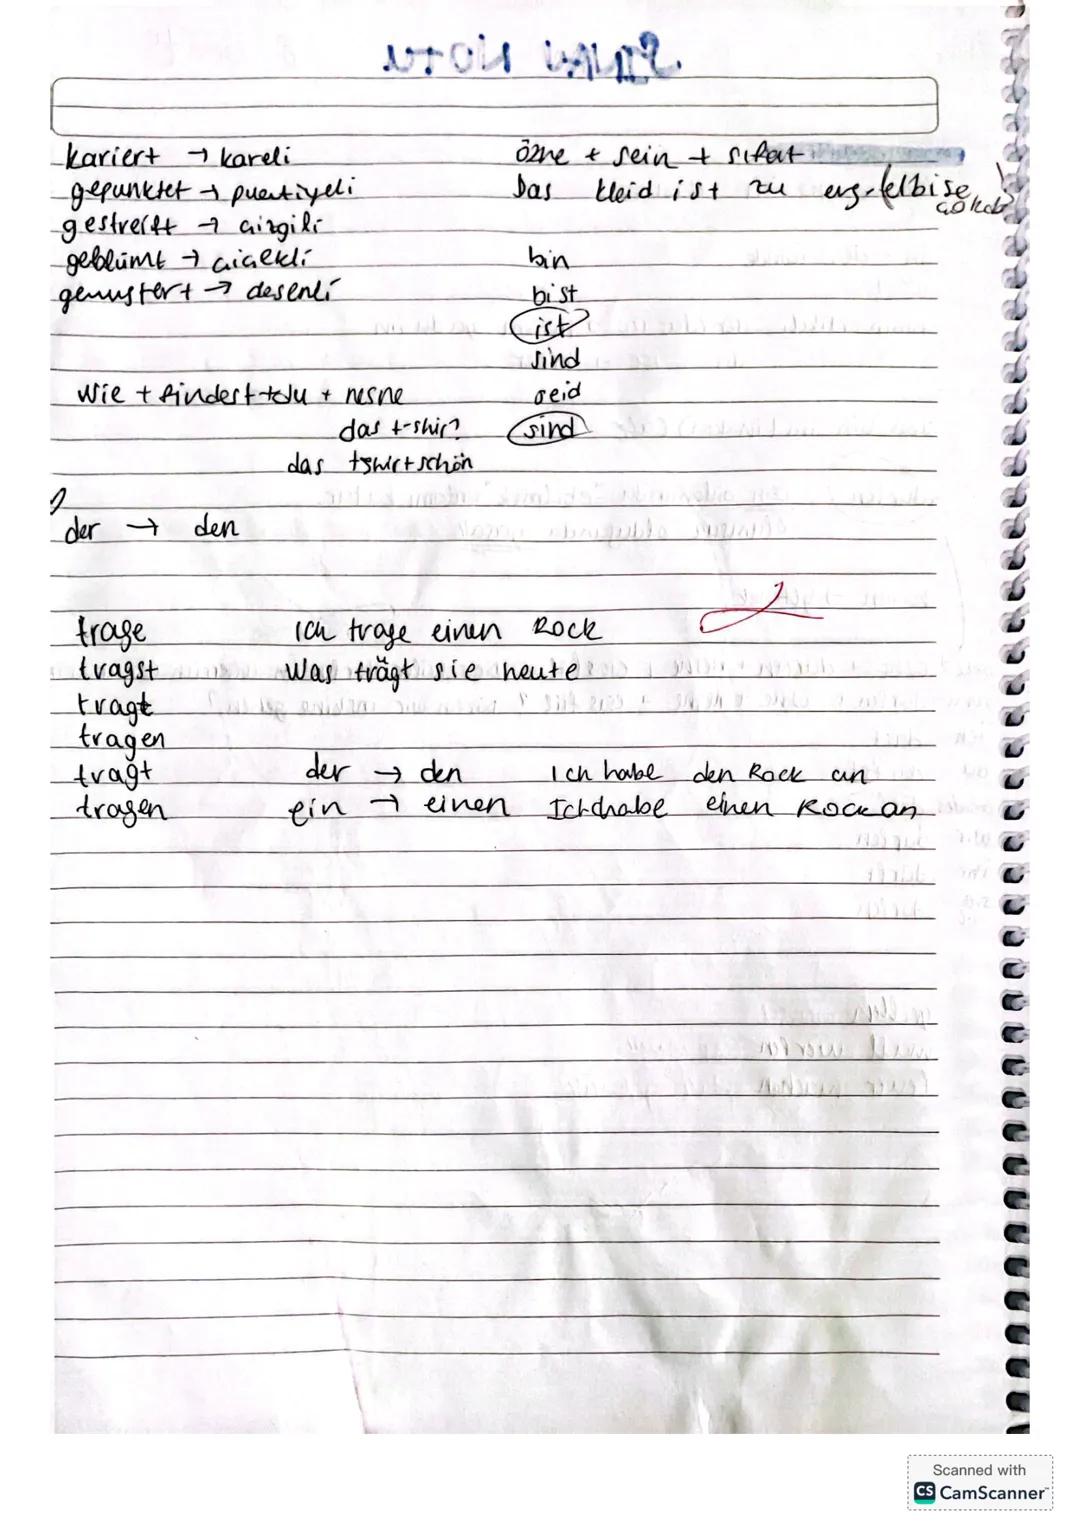 kariert → kareli
gepunktet → puantiyeli
gestreift → çizgili
geblümt → çiçekli
gemustert → desenli
özne + sein + sıfat
Das kleid ist zu eng. elbise çok
bin
bist
ist
sind
seid
sind
Wie + findest + du + nesne
das t-shir?
das tshirt schön
der → den
trage
tragst
tragt
tragen
tragt
tragen
Ich trage einen Rock
Was trägt sie heute
der → den Ich habe den Rock an
ein → einen Ich habe einen Rock an
Scanned with
CS CamScanner